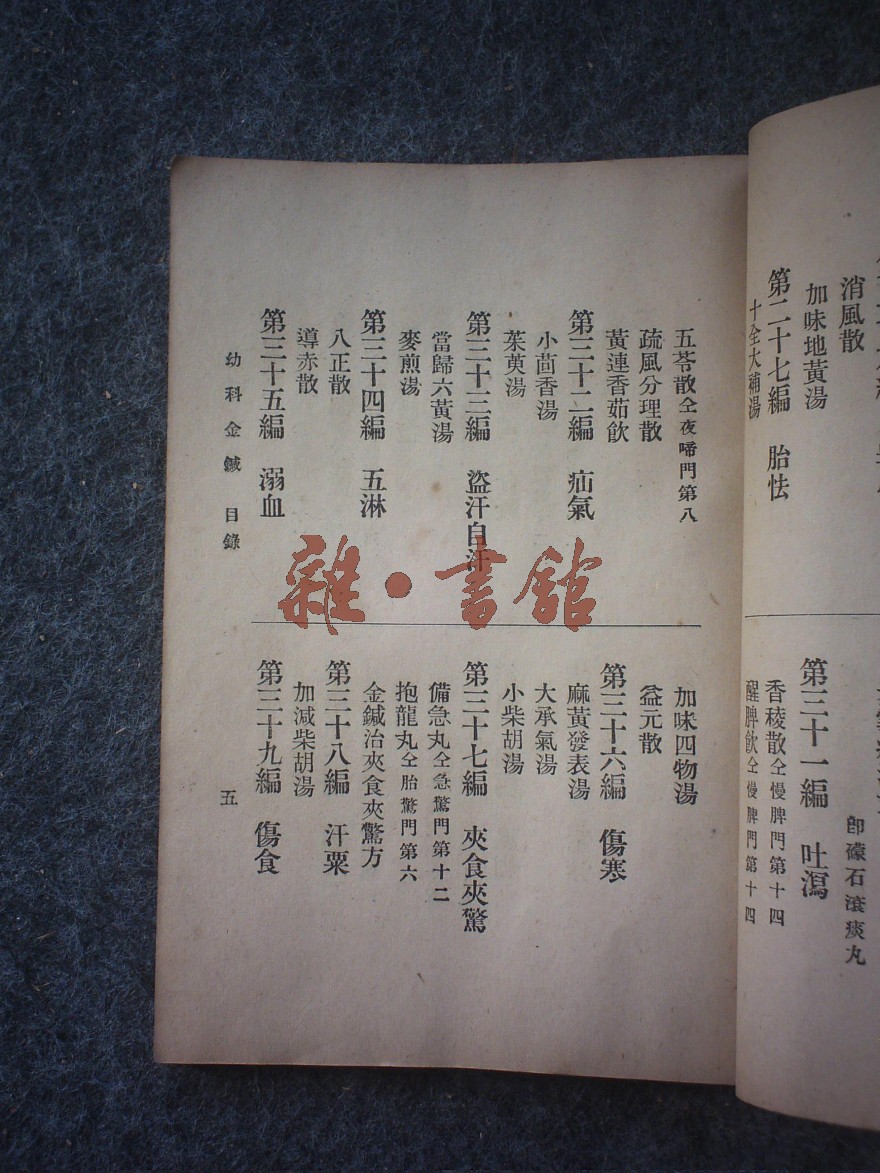 消風散
加味地黃湯
第二十七編 胎怯
十全大補湯
即礞石滾痰丸
第三十一編 吐瀉
香稜散仝慢脾門第十四
醒脾飲仝慢脾門第十四
五苓散仝夜啼門第八
疏風分理散
黃連香茹飲
第三十二編 疝氣
小茴香湯
茱萸湯
第三十三編 盜汗自汗
當歸六黃湯
麥煎湯
第三十四編 五淋
八正散
導赤散
第三十五編 溺血
加味四物湯
益元散
第三十六編 傷寒
麻黃發表湯
大承氣湯
小柴胡湯
第三十七編 夾食夾驚
備急丸仝急驚門第十二
抱龍丸仝胎驚門第六
金鍼治夾食夾驚方
第三十八編 汗粟
加減柴胡湯
第三十九編 傷食
幼科金鍼 目錄
五
雜·書館